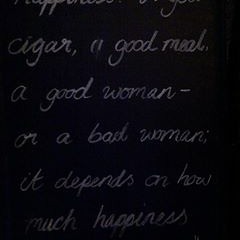 happiness?
cigar, a good meal,
a good woman -
or a bad woman;
it depends on how
much happiness